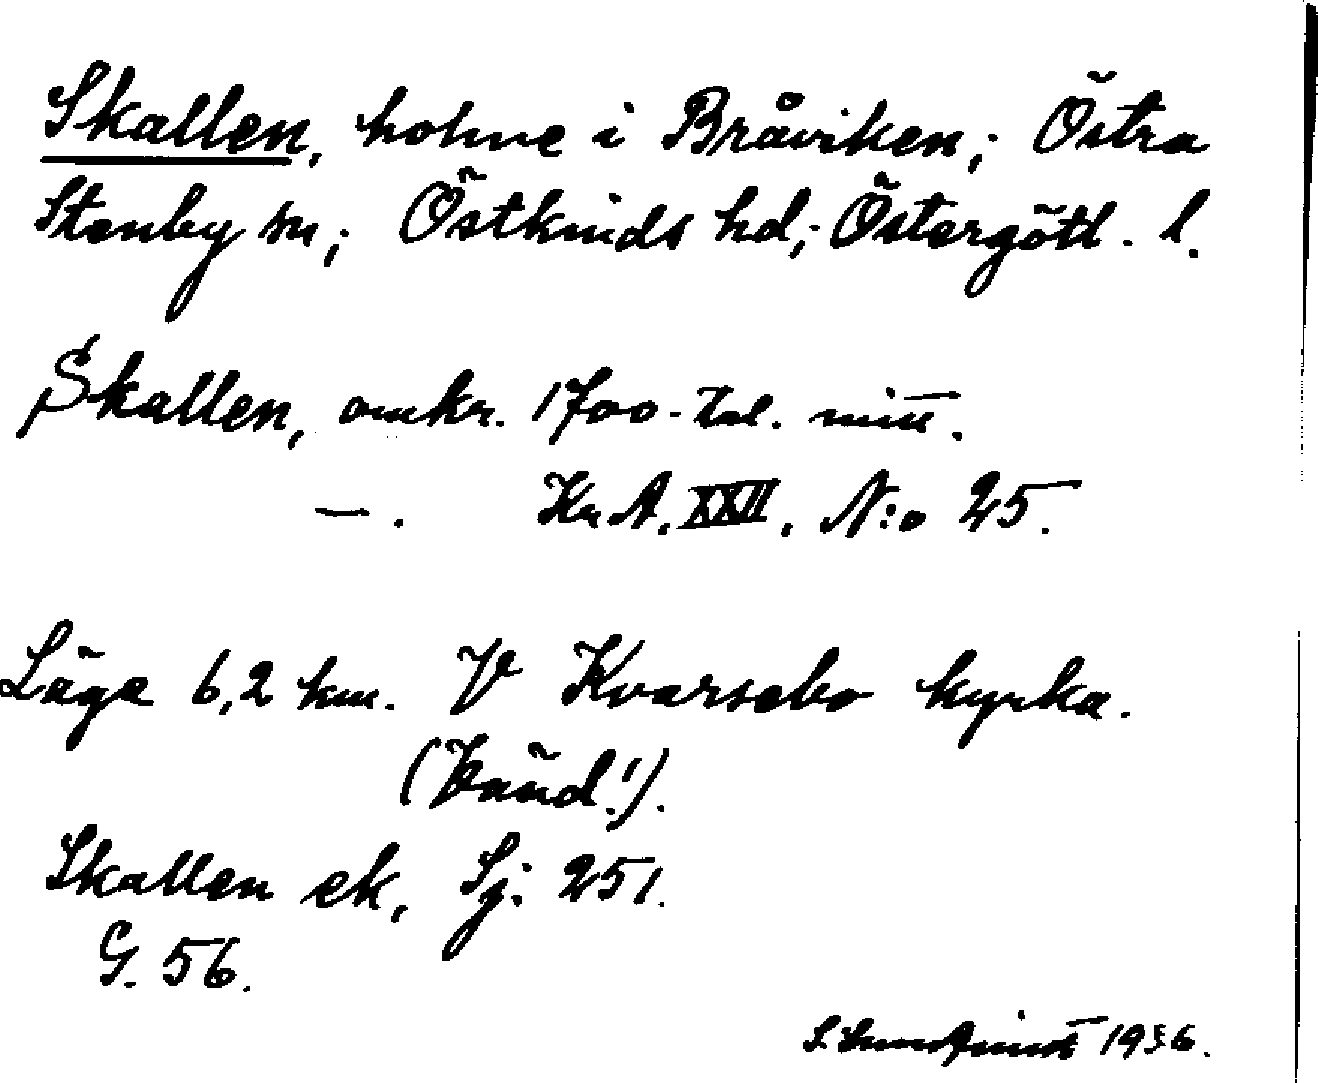 Skallen, holme i Bråviken; Östra
Stenby sn; Östkinds hd; Östergötl. l.
Skallen, omkr. 1700-tal. mitt.
—. Kr. A. XXII. N:o 25.
Läge 6,2 km. V Kvarsebo kyrka.
(Känd!).
Skallen ek, Sj. 251.
G. 56.
1936.